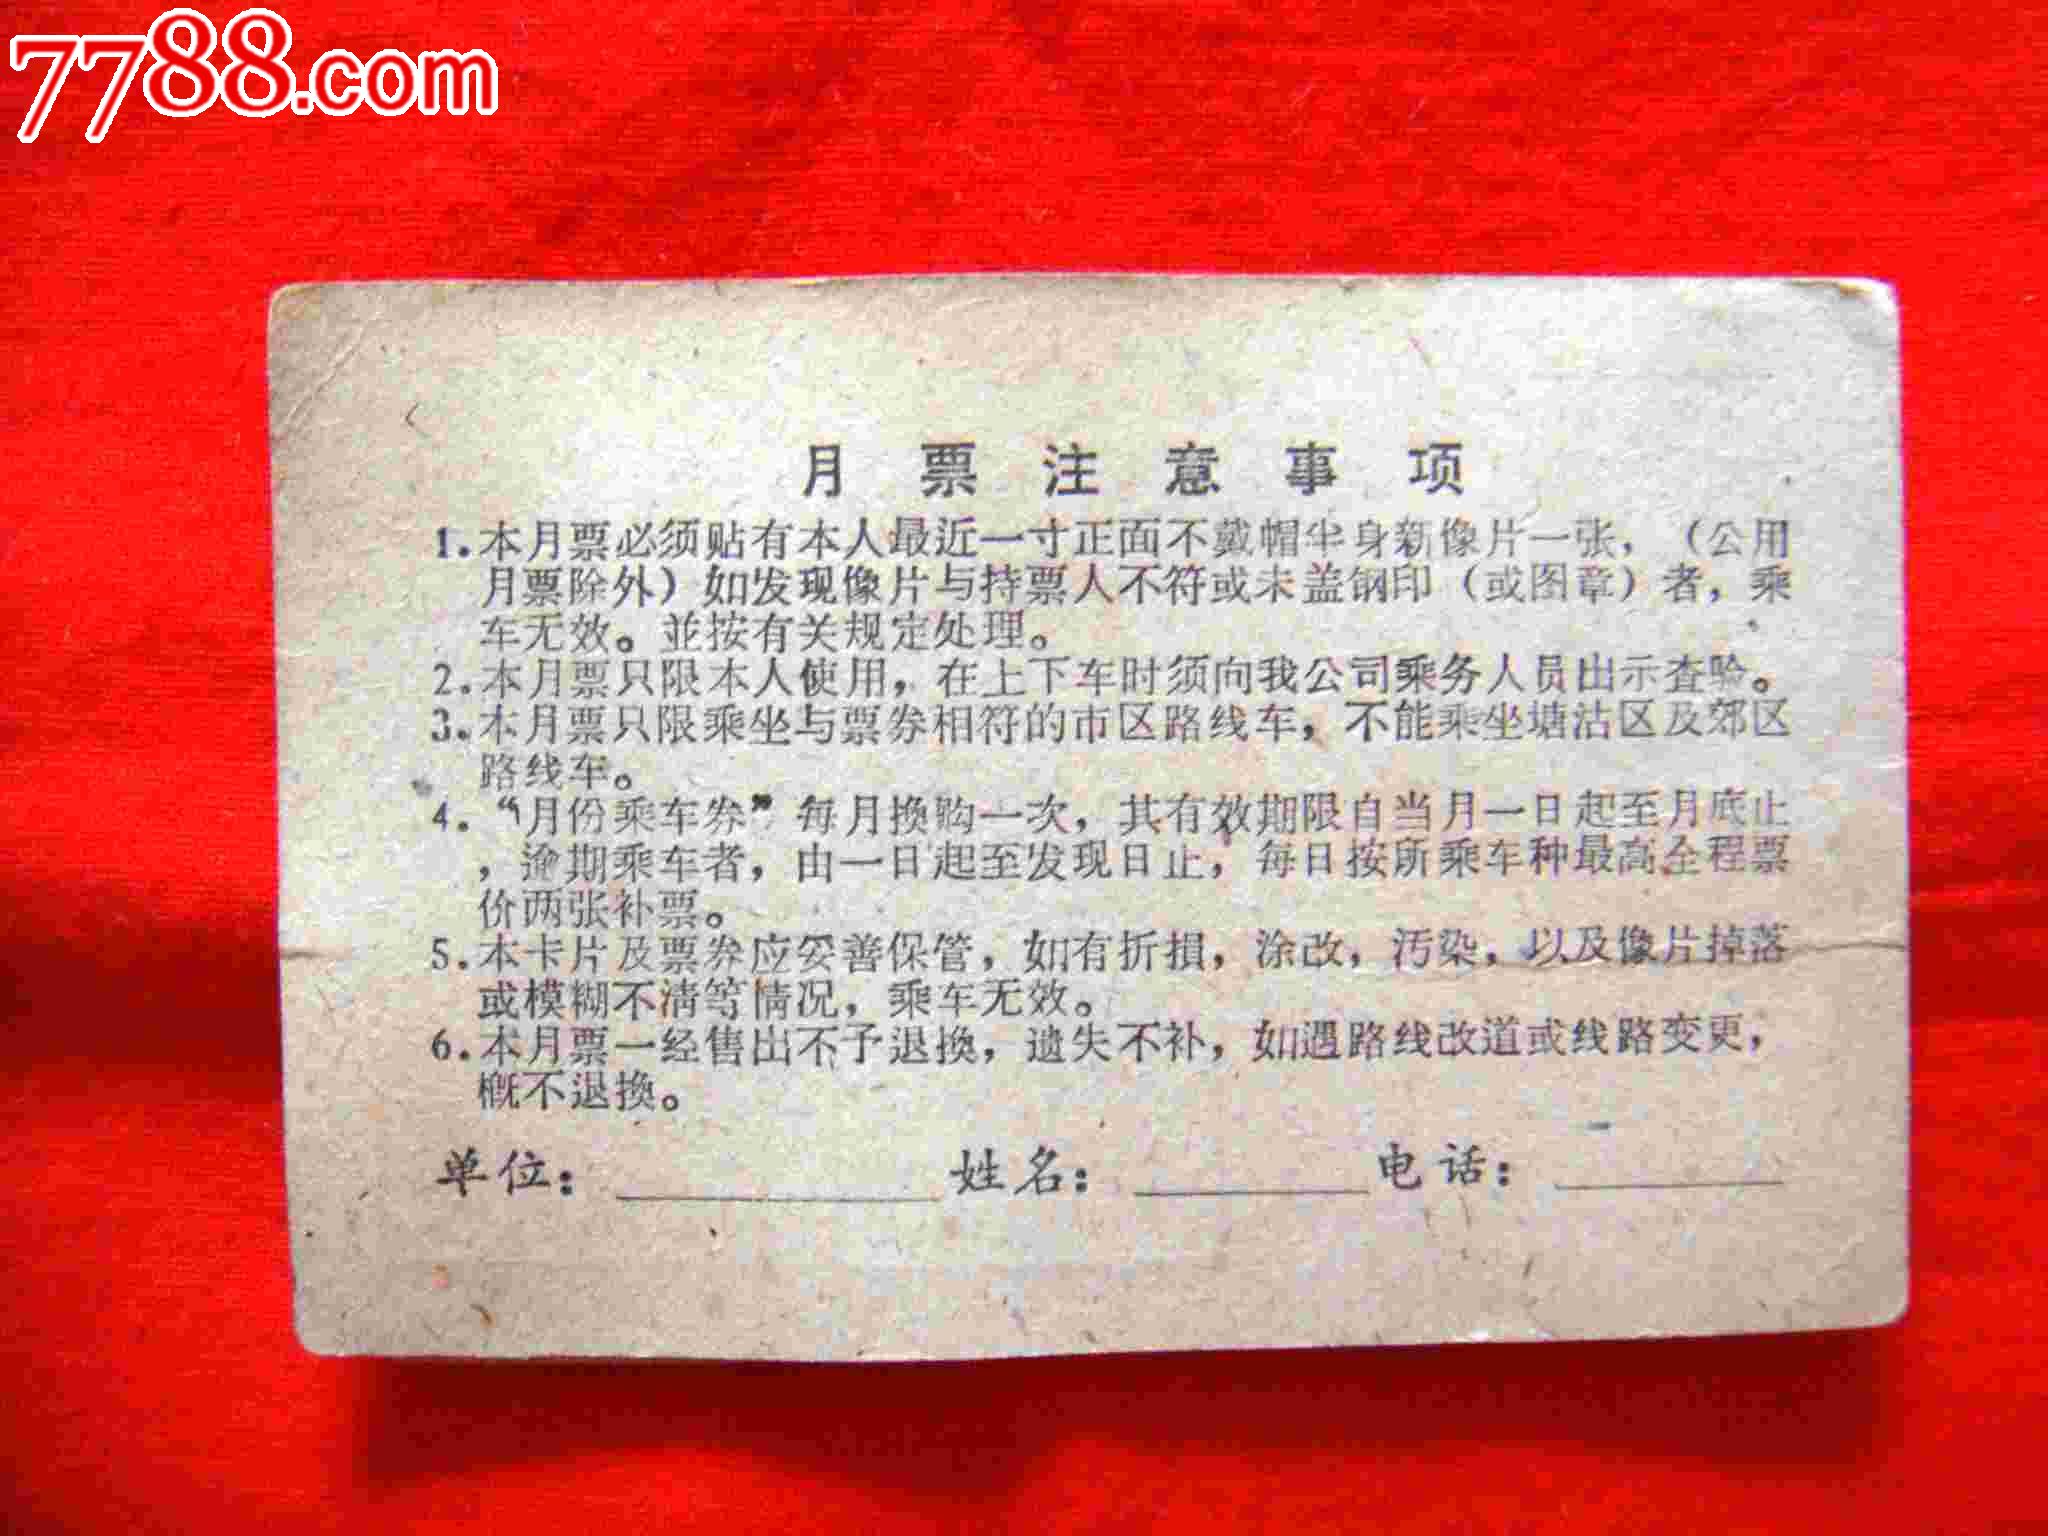 7788.com
月票注意事项
1.本月票必须贴有本人最近一寸正面不戴帽半身新像片一张，（公用
月票除外）如发现像片与持票人不符或未盖钢印（或图章）者，乘
车无效。並按有关规定处理。
2.本月票只限本人使用，在上下车时须向我公司乘务人员出示查验。
3.本月票只限乘坐与票券相符的市区路线车，不能乘坐塘沽区及郊区
路线车。
4.“月份乘车券”每月换购一次，其有效期限自当月一日起至月底止
，逾期乘车者，由一日起至发现日止，每日按所乘车种最高全程票
价两张补票。
5.本卡片及票券应妥善保管，如有折損，涂改，污染，以及像片掉落
或模糊不清等情况，乘车无效。
6.本月票一经售出不予退换，遗失不补，如遇路线改道或线路变更，
概不退换。
单位：　姓名：　电话：